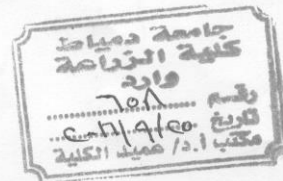 جامعة دمياط
كلية الزراعة
وارد
رقم ٦٥٨
تاريخ
مكتب أ.د/ عميد الكلية